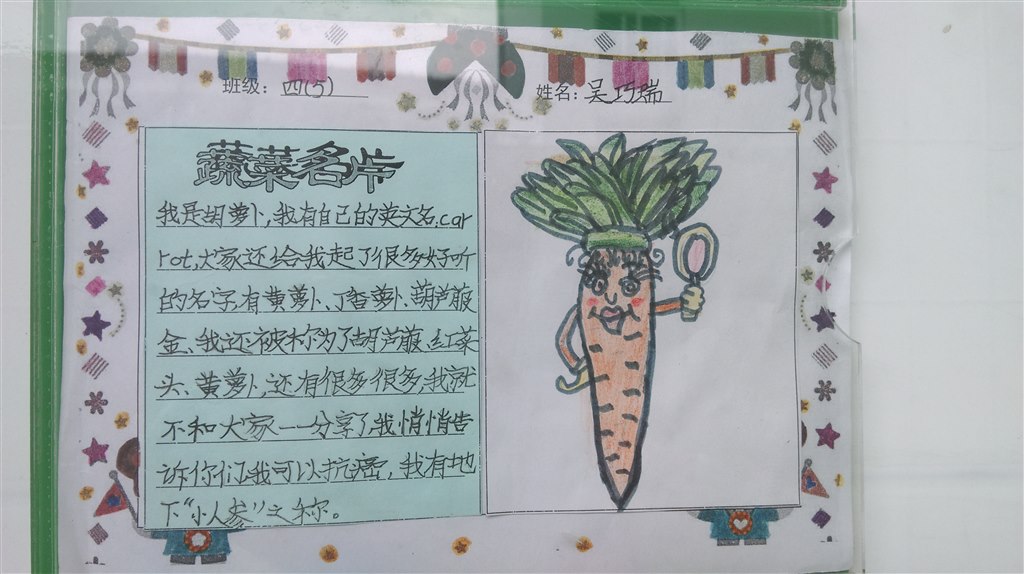 班级：四(5)
姓名：吴巧瑞
蔬菜名片
我是胡萝卜,我有自己的英文名,car
rot,大家还给我起了很多好听
的名字有黄萝卜、丁香萝卜、葫芦菔
金、我还被称为了胡芦菔、红菜
头、黄萝卜,还有很多很多,我就
不和大家一一分享了,我悄悄告
诉你们,我可以抗癌，我有地
下“小人参”之称。